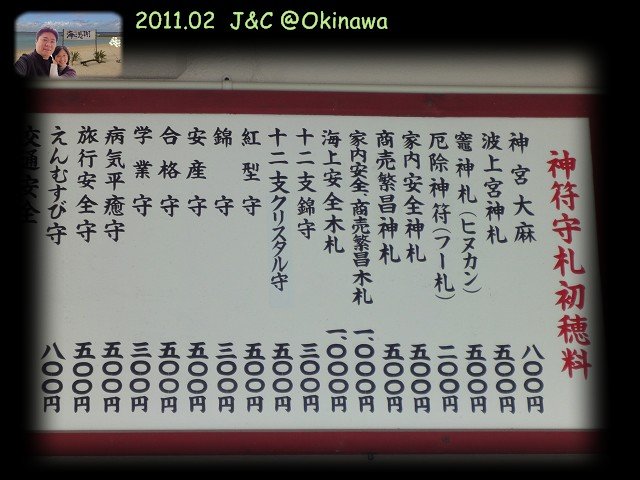 2011.02 J&C @Okinawa
神符守札初穂料
神宮大麻 八〇〇円
波上宮神札 五〇〇円
竈神札(ヒヌカン) 五〇〇円
厄除神符(フー札) 二〇〇円
家内安全神札 五〇〇円
商売繁昌神札 五〇〇円
家内安全、商売繁昌木札 一、〇〇〇円
海上安全木札 一、〇〇〇円
十二支錦守 三〇〇円
十二支クリスタル守 五〇〇円
紅型守 五〇〇円
錦守 三〇〇円
安産守 五〇〇円
合格守 五〇〇円
学業守 三〇〇円
病気平癒守 五〇〇円
旅行安全守 五〇〇円
えんむすび守 八〇〇円
交通安全